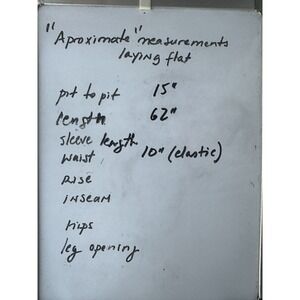 "Aproximate" measurements
laying flat
pit to pit 15"
length 62"
sleeve length
waist 10" (elastic)
RISE
INSEAM
hips
leg opening